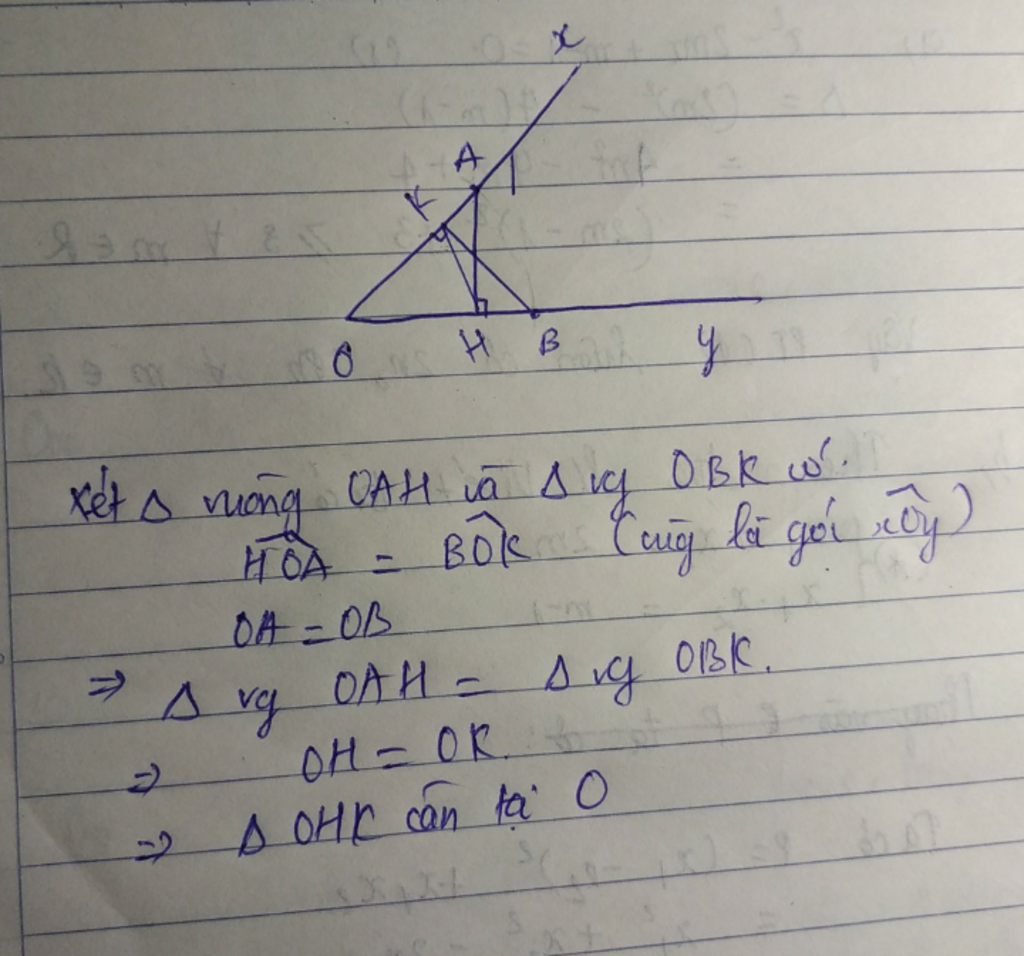 x
A
K
O H B y
Xét Δ vuông OAH và Δ vg OBK có.
HÔA = BÔK (cùg là góc xÔy)
OA = OB
⇒ Δ vg OAH = Δ vg OBK.
⇒ OH = OK.
⇒ Δ OHK cân tại O